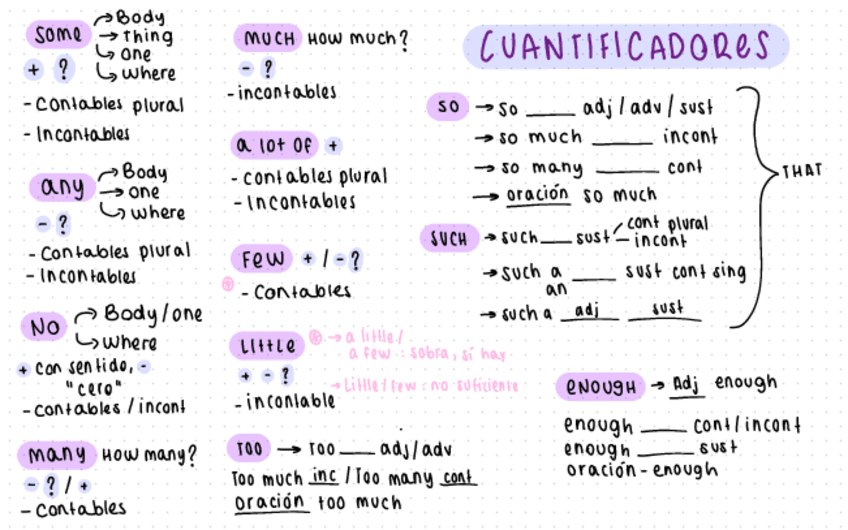 CUANTIFICADORES
some → Body
→ thing
→ one
→ where
+ ?
- Contables plural
- Incontables
any → Body
→ one
→ where
- ?
- Contables plural
- Incontables
NO → Body/one
→ where
+ con sentido, -
"cero"
- contables / incont
many How many?
- ? / +
- contables
much How much?
- ?
- incontables
a lot of +
- contables plural
- Incontables
FEW + / - ?
- Contables
LITTLE
→ a little/
a few : sobra, sí hay
+ - ?
→ Little/few : no suficiente
- incontable
TOO → TOO ___ adj/adv
Too much inc / Too many cont
oración too much
SO → so ___ adj / adv / sust
→ so much ___ incont
→ so many ___ cont
→ oración so much
SUCH → such ___ sust cont plural
incont
→ such a ___ sust cont sing
an
→ such a adj sust
THAT
ENOUGH → Adj enough
enough ___ cont/incont
enough ___ sust
oración - enough